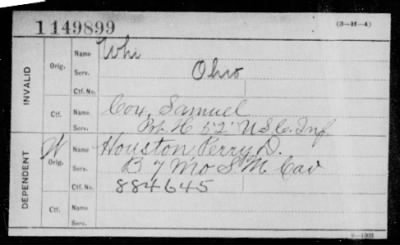 1149899
(3—H—4)
INVALID
Orig.
Name
Whi
Serv.
Ohio
Ctf. No.
Ctf.
Cox, Samuel
Pvt. H. 52" U S C. Inf.
DEPENDENT
W
Orig.
Name
Houston, Perry D.
Serv.
B 7 Mo S M Cav
Ctf. No.
884645
Ctf.
Name
Serv.